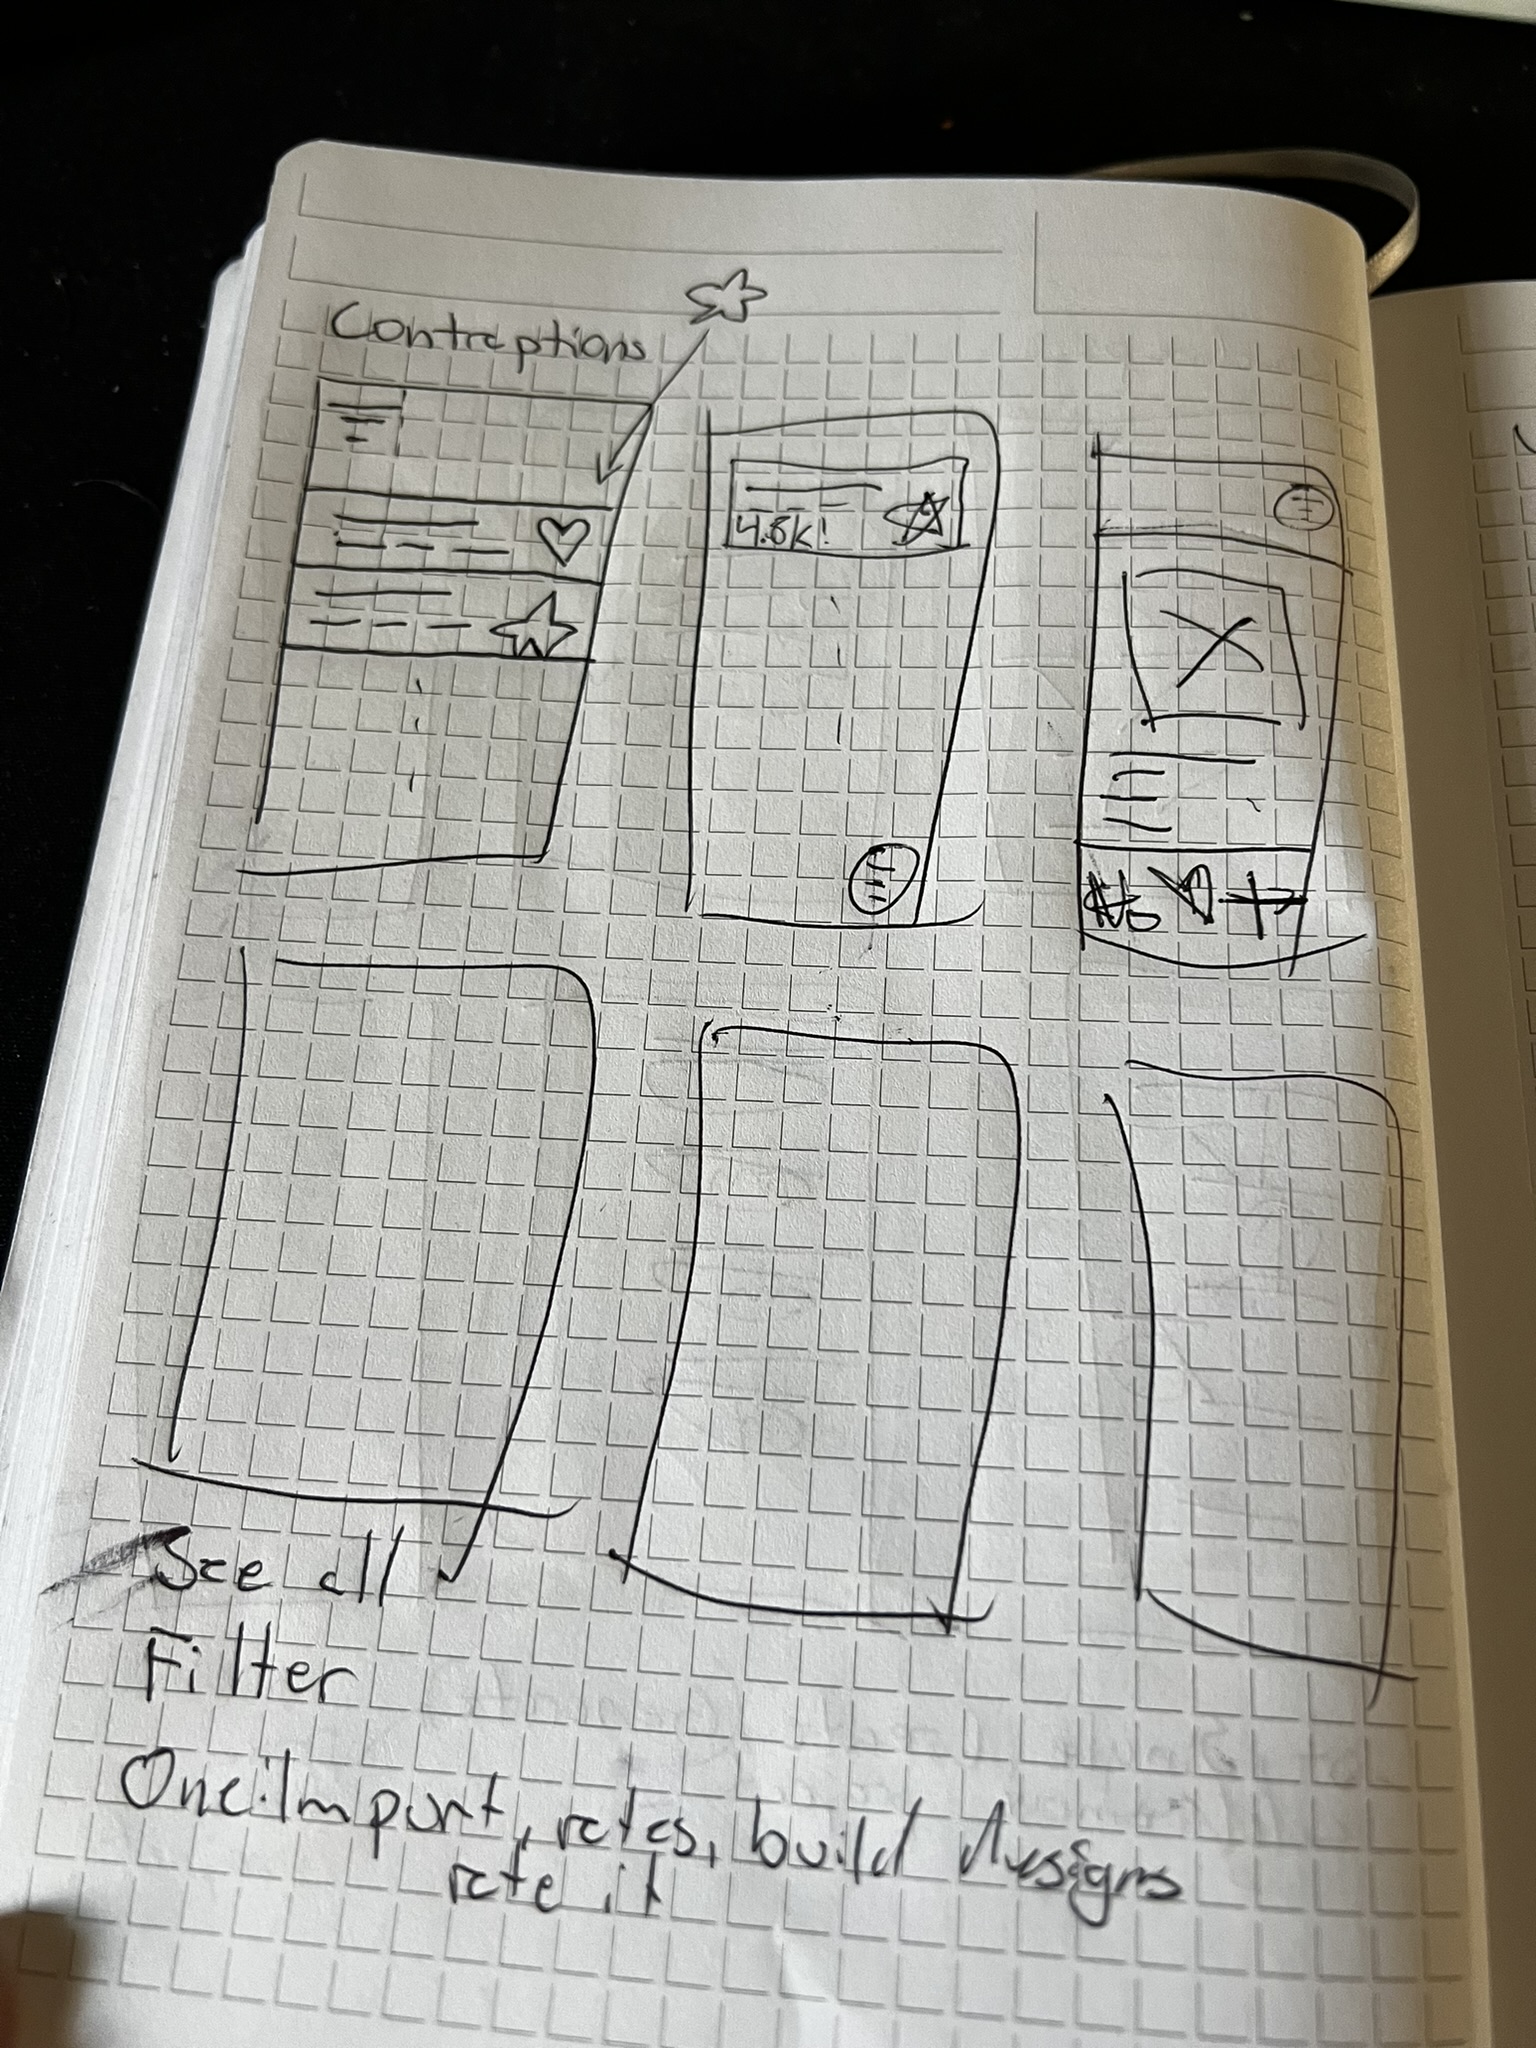 Contraptions
4.8k!
See all
Filter
One: Import, rates, build designs
rate it